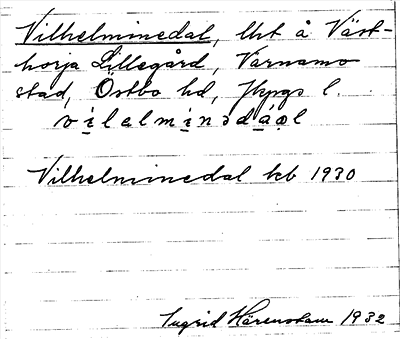 Vilhelminedal, lht å Väst-
horja Lillegård, Värnamo
stad, Östbo hd, Jkpgs l.
vilelminəd
Vilhelminedal kb 1930
Ingrid Härenstam 1932